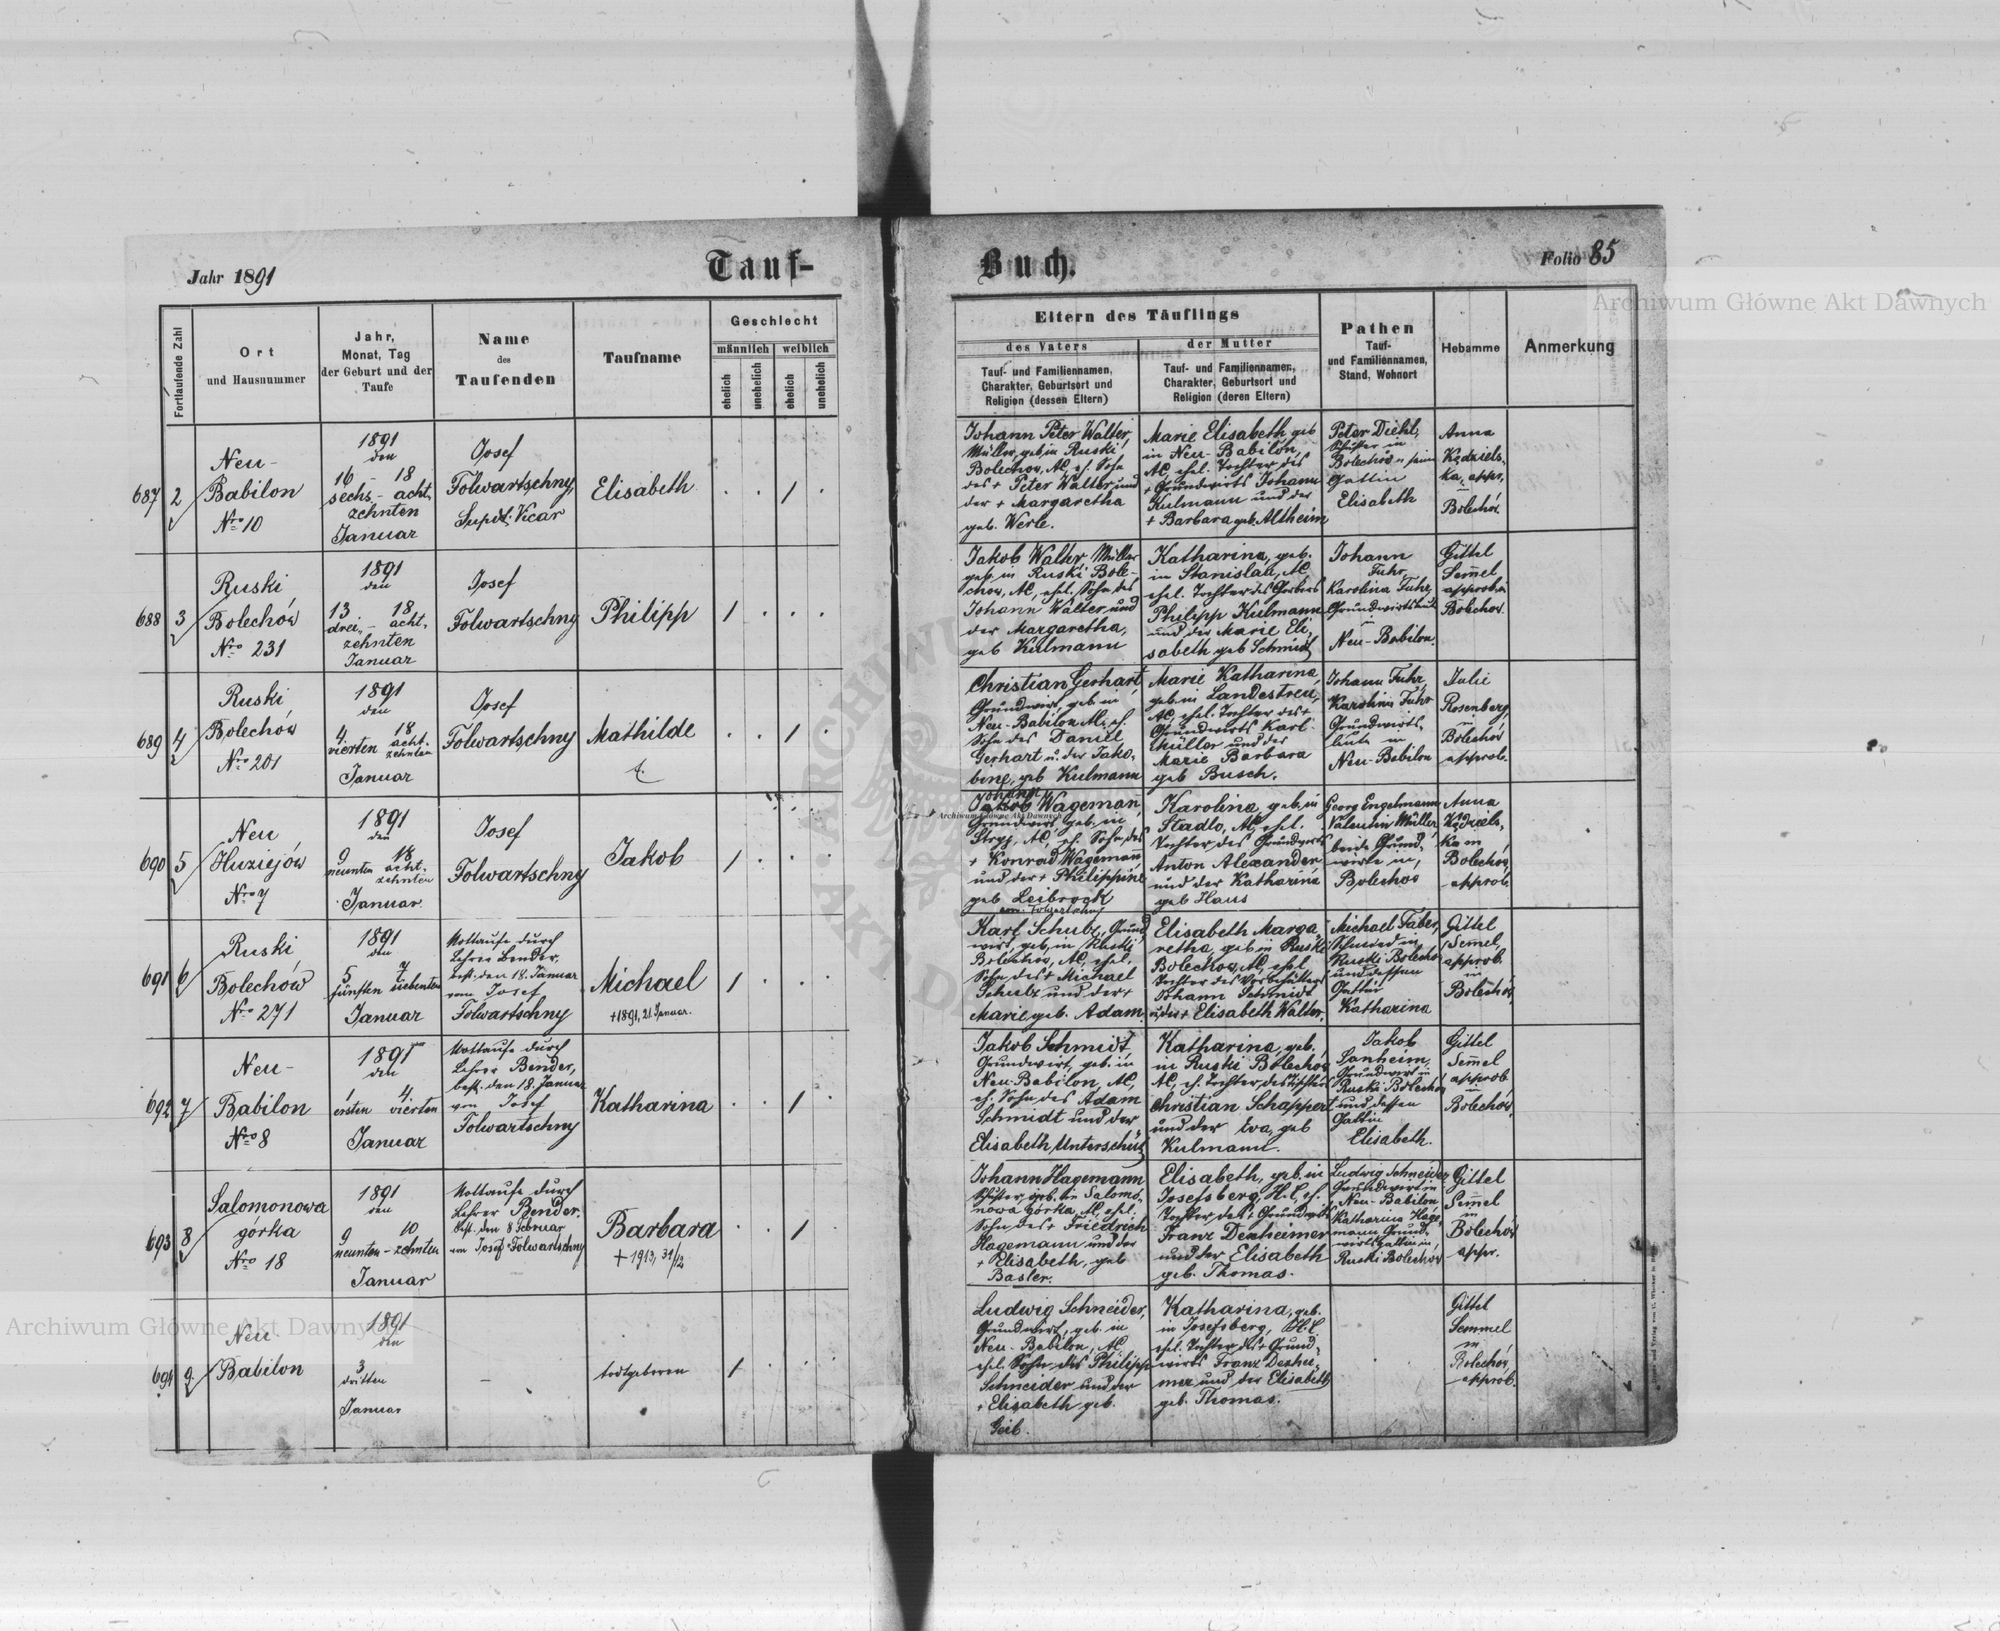 Tauf-
Buch.
Jahr 1891
Folio 85
Archiwum Główne Akt Dawnych
Fortlaufende Zahl
Ort
und Hausnummer
Jahr,
Monat, Tag
der Geburt und der
Taufe
Name
des
Taufenden
Taufname
Geschlecht
männlich weiblich
ehelich
unehelich
ehelich
unehelich
Eltern des Täuflings
des Vaters
Tauf- und Familiennamen,
Charakter, Geburtsort und
Religion (dessen Eltern)
der Mutter
Tauf- und Familiennamen,
Charakter, Geburtsort und
Religion (deren Eltern)
Pathen
Tauf-
und Familiennamen,
Stand, Wohnort
Hebamme
Anmerkung
687 2
Neu-
Babilon
Nro 10
1891
den
16 - 18
sechs- acht,
zehnten
Januar
Josef
Folwartschny,
Supdt. Vicar
Elisabeth
1
Johann Peter Walter,
Müller, geb. in Ruski
Bolechow, AC, eh. Sohn
des + Peter Walter und
der + Margaretha
geb. Werle.
Marie Elisabeth geb
in Neu-Babilon,
AC, ehel. Tochter des
+ Grundwirts Johann
Kulmann und der
+ Barbara geb. Altheim
Peter Diehl,
Schuster in
Bolechów u. seine
Gattin
Elisabeth
Anna
Kędziels,
ka, appr,
in
Bolechów
688 3
Ruski
Bolechów
Nro 231
1891
den
13 18
drei,- acht,
zehnten
Januar
Josef
Folwartschny
Philipp
1
Jakob Walter, Müller
geb. in Ruski Bole-
chow, AC, ehel. Sohn des
Johann Walter und
der Margaretha,
geb Kulmann
Katharina, geb.
in Stanislau, AC
ehel. Tochter des Gerbers
Philipp Kulmann
und der Marie Eli,
sabeth geb Schmidt
Johann
Fuhr,
Karolina Fuhr,
Grundwirtsleute
in
Neu-Babilon.
Gittel
Semmel
approb. in
Bolechow.
689 4
Ruski
Bolechów
Nro 201
1891
den
4. 18
vierten acht-
zehnten
Januar
Josef
Folwartschny
Mathilde
1
Christian Gerhart,
Grundwirt, geb. in
Neu-Babilon AC, eh.
Sohn des Daniel
Gerhart u. der Jako,
bine, geb Kulmann
Marie Katharina,
geb. in Landestreu,
AC, ehel. Tochter des +
Grundwirts Karl
Müller und der
Marie Barbara
geb Busch.
Johann Fuhr,
Karolina Fuhr
Grundwirts,
leute in
Neu-Babilon
Julie
Rosenberg,
in
Bolechow
approb.
690 5
Neu
Huziejów
Nro 7
1891
den
9 18
neunten acht-
zehnten
Januar.
Josef
Folwartschny
Jakob
1
Johann
Jakob Wageman
Grundwirt geb. in
Stryj, AC, eh. Sohn des
+ Konrad Wageman
und der + Philippine
geb Leibrock
Karolina, geb. in
Stadlo, AC, ehel.
Tochter des Grundwirts
Anton Alexander
und der Katharina
geb Haus
Georg Engelmann,
Valentin Müller,
beide Grund,
wirte in,
Bolechow
Anna
Kędziels,
ka in
Bolechów,
approb.
691 6
Ruski
Bolechów
Nro 271
1891
den
5 7
fünften siebenten
Januar
Nottaufe durch
Lehrer Bender,
best. den 18. Januar
vom Josef
Folwartschny
Michael
+ 1891, 21. Januar.
1
Karl Schulz, Grund
wirt, geb. in Ruski
Bolechow, AC, ehel.
Sohn des + Michael
Schulz und der +
Marie geb. Adam
Elisabeth Marga,
retha, geb in Ruski
Bolechow, AC, ehel
Tochter des
Johann Schmidt
u. der + Elisabeth Walter.
Michael Faber,
Schmied in
Ruski Bolechow
und dessen
Gattin
Katharina
Gittel
Semel,
approb.
in
Bolechów,
692 7
Neu-
Babilon
Nro 8
1891
den
1 4.
ersten vierten
Januar
Nottaufe durch
Lehrer Bender,
best. den 18. Januar
von Josef
Folwartschny
Katharina
1
Jakob Schmidt
Grundwirt, geb. in
Neu-Babilon, AC,
eh. Sohn des Adam
Schmidt und der
Elisabeth Unterschütz
Katharina, geb.
in Ruski Bolechow
AC, eh. Tochter, des Tischlers
Christian Schappert
und der Eva, geb
Kulmann.
Jakob
Sanheim,
Grundwirt in
Ruski Bolechow
und dessen
Gattin
Elisabeth.
Gittel
Semmel
approb.
in
Bolechów.
693 8
Salomonowa
górka
Nro 18
1891
den
9 10
neunten-zehnten
Januar
Nottaufe durch
Lehrer Bender.
Best. den 8 Februar
von Josef Folwartschny
Barbara
+ 1913, 31/12
1
Johann Hagemann
Schuster, geb. in Salomo,
nowa górka, AC, ehel.
Sohn des + Friedrich
Hagemann und der
+ Elisabeth, geb
Basler.
Elisabeth, geb. in
Josefsberg, H.C, eh.
Tochter des + Grundwirts
Franz Dexheimer
und der Elisabeth
geb. Thomas.
Ludwig Schneider
Grundwirt in
Neu-Babilon
Katharina Hage,
mann Grund,
wirtsgattin in,
Ruski Bolechów
Gittel
Semmel
in
Bolechów
appr.
694 9.
Neu
Babilon
1891
den
3
dritten
Januar
-
todtgeboren
1
Ludwig Schneider,
Grundwirt, geb. in
Neu-Babilon, AC,
ehel. Sohn des Philipp
Schneider und der
+ Elisabeth geb.
Geib.
Katharina, geb.
in Josefsberg, H.C.
ehel. Tochter des + Grund,
wirts Franz Dexhei,
mer und der Elisabeth
geb. Thomas.
Gittel
Semmel
in
Bolechow,
approb.
Archiwum Główne Akt Dawnych
Archiwum Główne Akt Dawnych